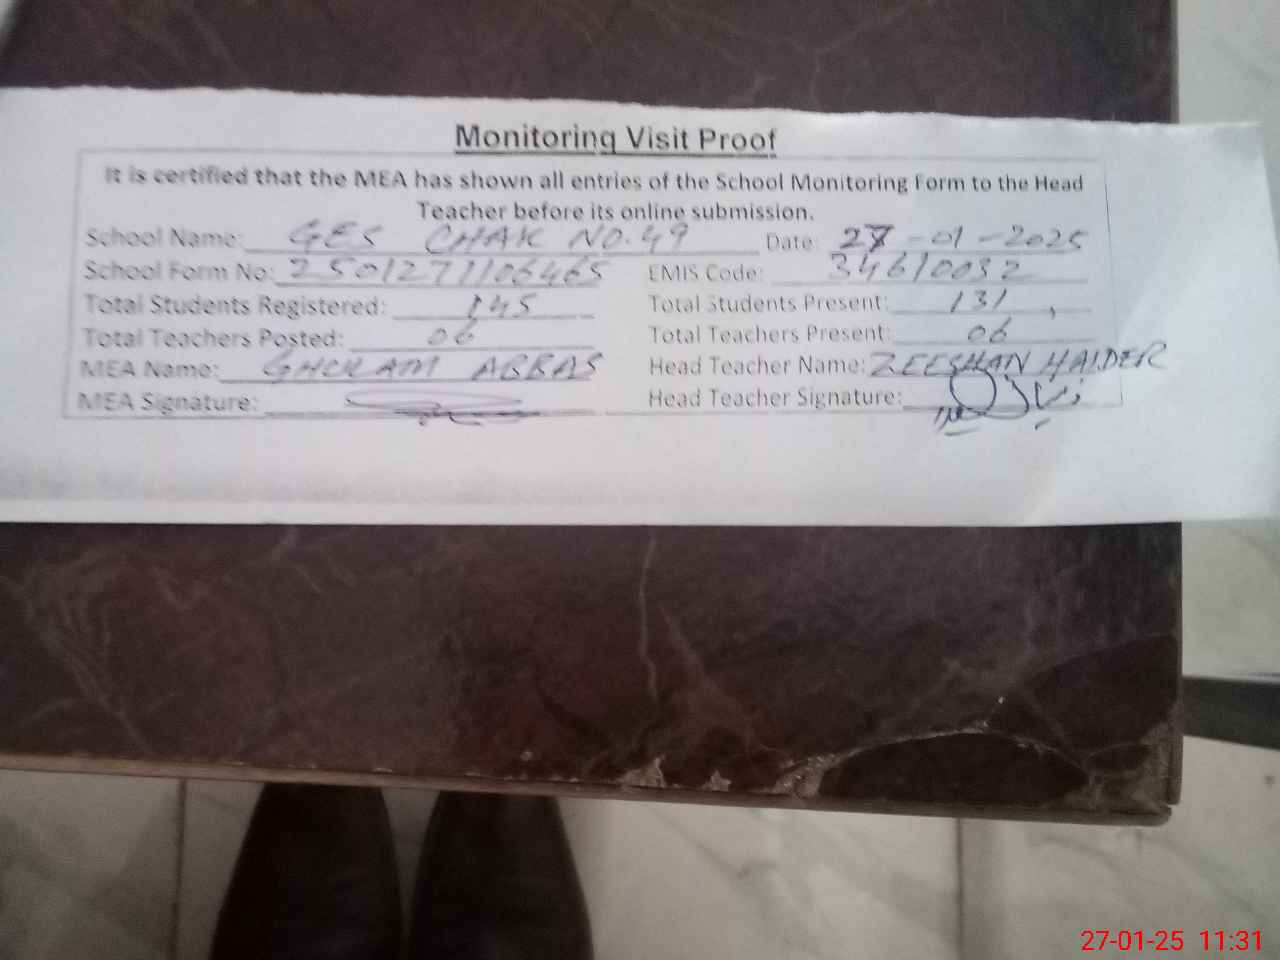 Monitoring Visit Proof
It is certified that the MEA has shown all entries of the School Monitoring Form to the Head
Teacher before its online submission.
School Name: GES CHAK NO. 49 Date: 27-01-2025
School Form No: 2501271106465 EMIS Code: 34610032
Total Students Registered: 145 Total Students Present: 131
Total Teachers Posted: 06 Total Teachers Present: 06
MEA Name: GHULAM ABBAS Head Teacher Name: ZEESHAN HAIDER
MEA Signature: Head Teacher Signature:
27-01-25 11:31